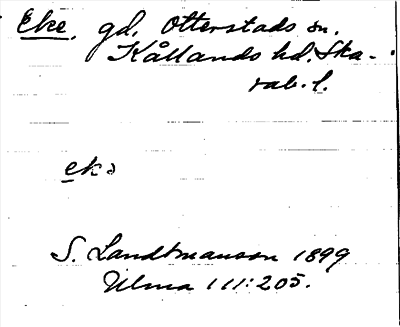 Eke, gd, Otterstads sn.
Kållands hd. Ska-
rab. l.
ekə
S. Landtmanson 1899
Ulma 111:205.